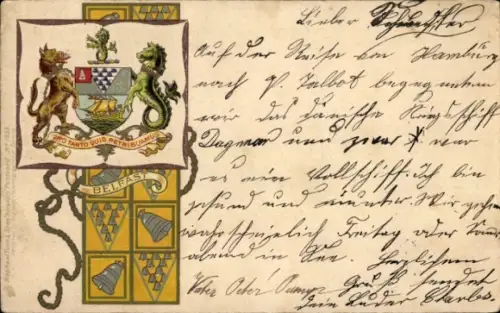 Lieber
Auf der Reise von Hamburg
nach P. Talbot begegneten
wir das dänische Kriegsschiff
Dagmar und zwar war
es ein Vollschiff. Ich bin
gesund und munter. Wir gehen
wahrscheinlich Freitag oder Sonn
abend in See. Herzlichen
Gruß sendet
dein Bruder Charles
Vater Peter
PRO TANTO QUID RETRIBUAMUS
BELFAST